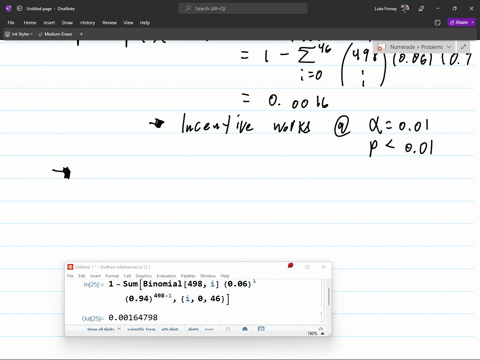 Untitled page - OneNote
Search (Alt+Q)
Luke Finney
File Home Insert Draw History Review View Help Class Notebook
Share
Ink Styles Medium Eraser
Numerade > Problems
= 1 - Σ 46 i=0 (498 i) (0.06) (0.9
= 0.0016
→ Incentive works @ α = 0.01
p < 0.01
→
Untitled-1 * - Wolfram Mathematica 12.1
File Edit Insert Format Cell Graphics Evaluation Palettes Window Help
In[25]:= 1 - Sum[Binomial[498, i] (0.06)^i
(0.94)^498-i, {i, 0, 46}]
Out[25]= 0.00164798
show all digits scientific form exit digits more...
100%